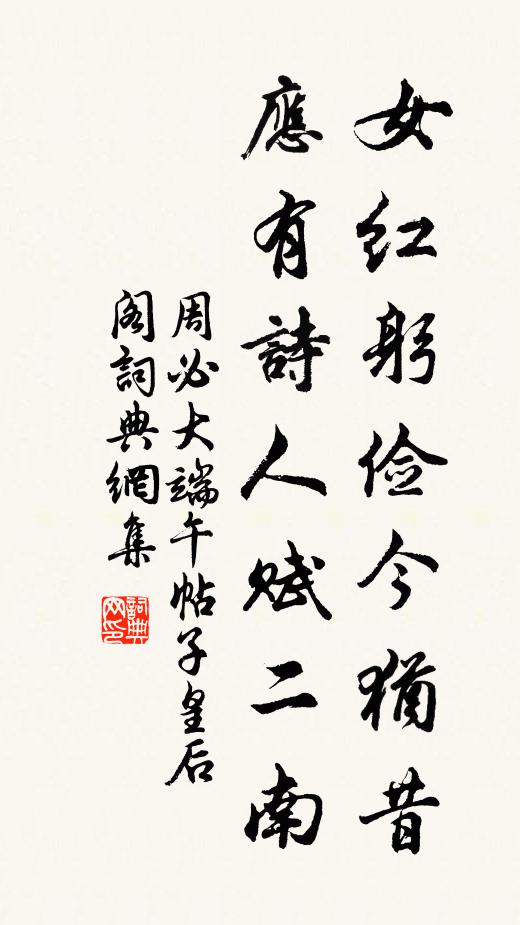 女红躬俭今猶昔
應有詩人赋二南
周必大端午帖子皇后
阁詞典網集
詞典网印